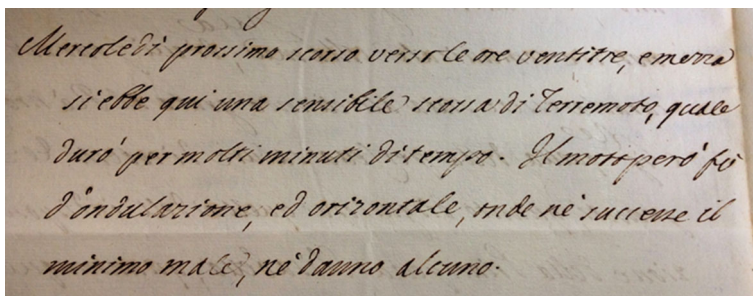 Mercoledì prossimo scorso verso le ore ventitre, e mezza
si ebbe qui una sensibile scossa di Terremoto, quale
durò per molti minuti di tempo. Il moto però fù
d'ondulazione, ed orizontale, onde nè successe il
minimo male, nè danno alcuno.